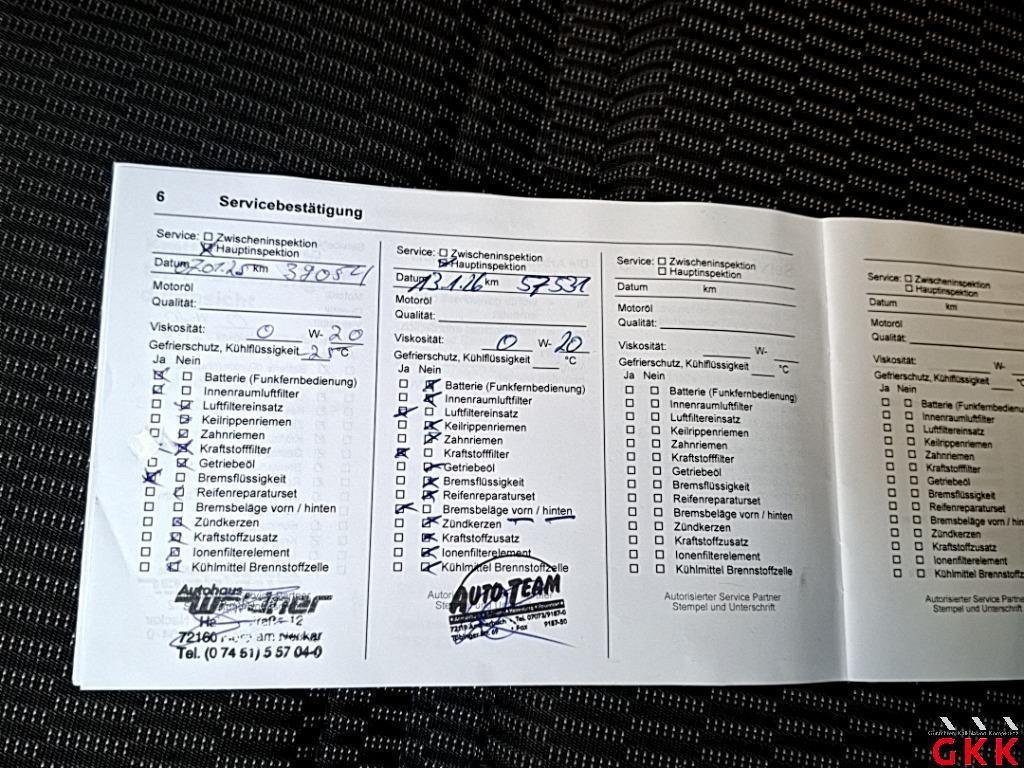 6 Servicebestätigung
Service: Zwischeninspektion
Hauptinspektion
Datum 07.01.25 km 38054
Motoröl
Qualität:
Viskosität: 0 W- 20
Gefrierschutz, Kühlflüssigkeit -25°C
Ja Nein
Batterie (Funkfernbedienung)
Innenraumluftfilter
Luftfiltereinsatz
Keilrippenriemen
Zahnriemen
Kraftstofffilter
Getriebeöl
Bremsflüssigkeit
Reifenreparaturset
Bremsbeläge vorn / hinten
Zündkerzen
Kraftstoffzusatz
Ionenfilterelement
Kühlmittel Brennstoffzelle
Autohaus
72160 Horb am Neckar
Tel. (0 74 51) 5 57 04-0
Service: Zwischeninspektion
Hauptinspektion
Datum 13.1.26 km 57531
Motoröl
Qualität:
Viskosität: 0 W- 20
Gefrierschutz, Kühlflüssigkeit °C
Ja Nein
Batterie (Funkfernbedienung)
Innenraumluftfilter
Luftfiltereinsatz
Keilrippenriemen
Zahnriemen
Kraftstofffilter
Getriebeöl
Bremsflüssigkeit
Reifenreparaturset
Bremsbeläge vorn / hinten
Zündkerzen
Kraftstoffzusatz
Ionenfilterelement
Kühlmittel Brennstoffzelle
AUTO-TEAM
Tel. 07073/9187-0
Fax 9187-50
Service: Zwischeninspektion
Hauptinspektion
Datum km
Motoröl
Qualität:
Viskosität: W-
Gefrierschutz, Kühlflüssigkeit °C
Ja Nein
Batterie (Funkfernbedienung)
Innenraumluftfilter
Luftfiltereinsatz
Keilrippenriemen
Zahnriemen
Kraftstofffilter
Getriebeöl
Bremsflüssigkeit
Reifenreparaturset
Bremsbeläge vorn / hinten
Zündkerzen
Kraftstoffzusatz
Ionenfilterelement
Kühlmittel Brennstoffzelle
Autorisierter Service Partner
Stempel und Unterschrift
Service: Zwischeninspektion
Hauptinspektion
Datum km
Motoröl
Qualität:
Viskosität: W-
Gefrierschutz, Kühlflüssigkeit °C
Ja Nein
Batterie (Funkfernbedienu
Innenraumluftfilter
Luftfiltereinsatz
Keilrippenriemen
Zahnriemen
Kraftstofffilter
Getriebeöl
Bremsflüssigkeit
Reifenreparaturset
Bremsbeläge vorn / hint
Zündkerzen
Kraftstoffzusatz
Ionenfilterelement
Kühlmittel Brennstoffz
Autorisierter Service Partner
Stempel und Unterschrift
GKK